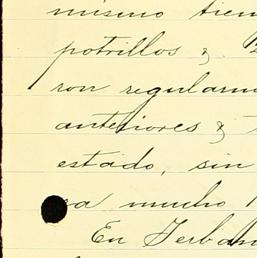 mismo tiem
potrillos &
ron regularm
anteriores &
estado, sin
a mucho
En Jerban